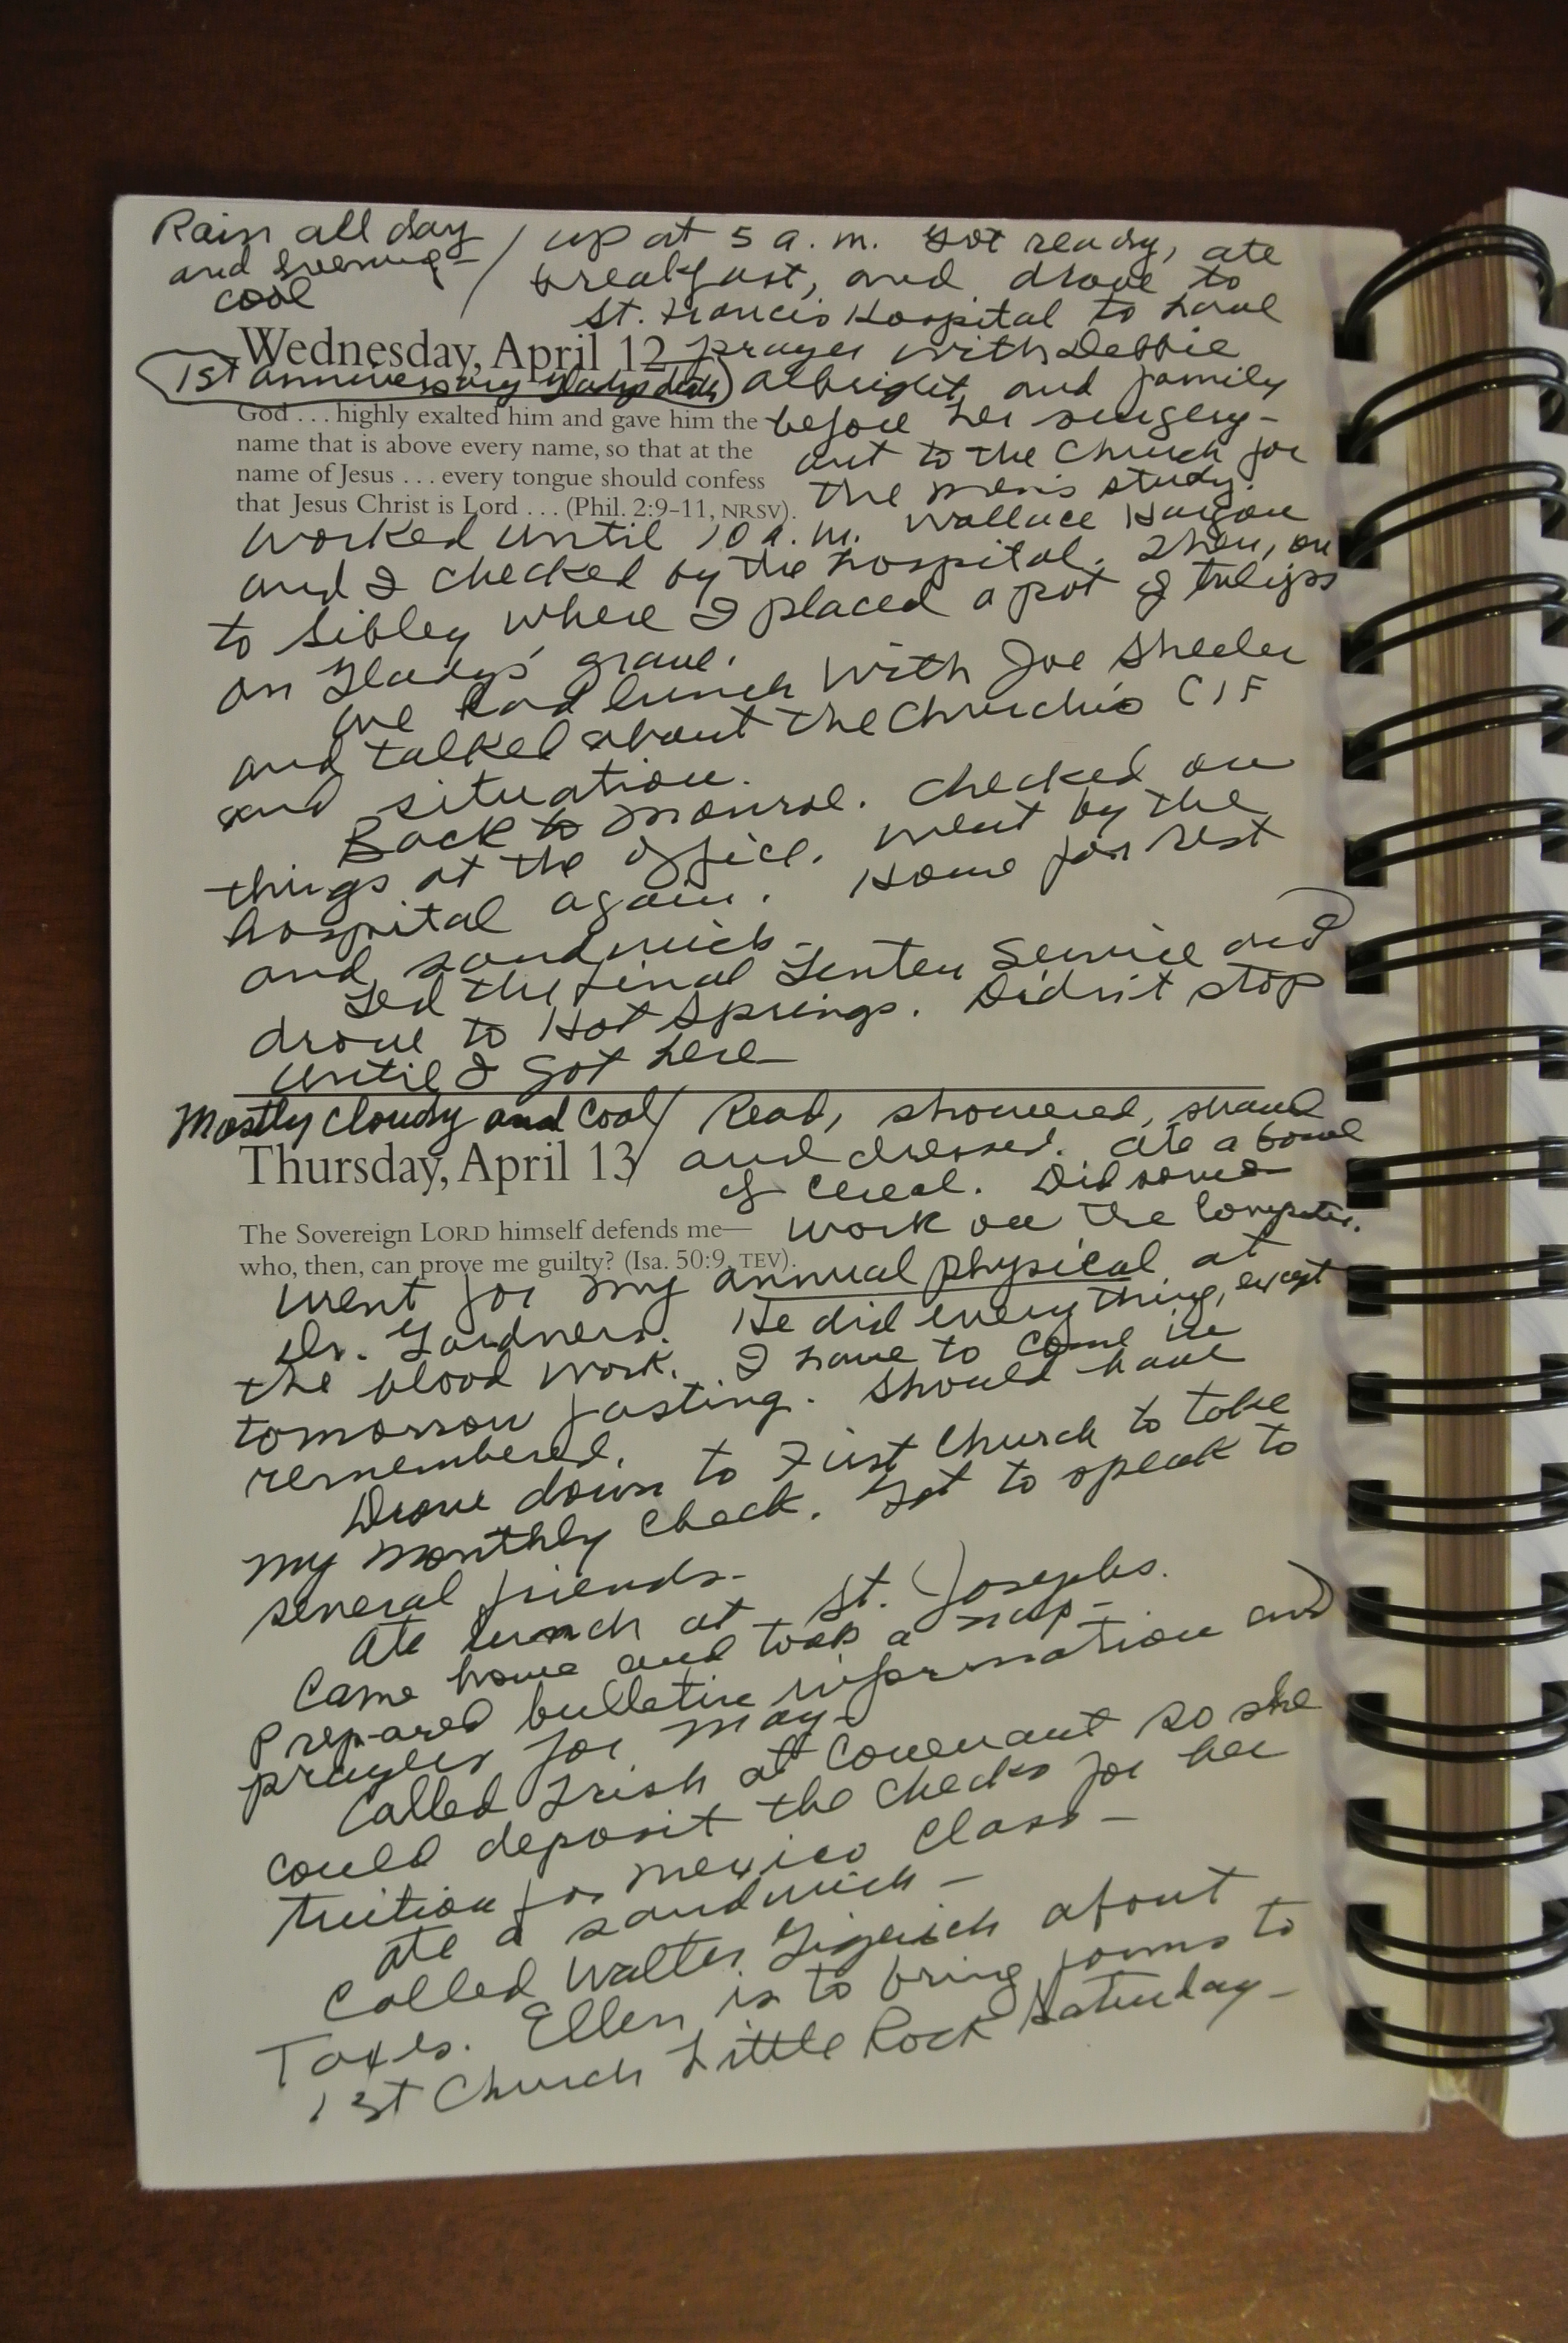 Rain all day / up at 5 a.m. Got ready, ate
and evening - breakfast, and drove to
cool St. Francis Hospital to have
Wednesday, April 12 prayer with Debbie
1st anniversary Gladys' death Albright and family
God . . . highly exalted him and gave him the before her surgery -
name that is above every name, so that at the out to the Church for
name of Jesus . . . every tongue should confess the men's study.
that Jesus Christ is Lord . . . (Phil. 2:9–11, NRSV).
Worked until 10 a.m. Wallace
and I checked by the hospital. Then, on
to Sibley where I placed a pot of tulips
on Gladys' grave.
We had lunch with Joe Sheeler
and talked about the Church's CIF
and situation.
Back to Monroe. Checked on
things at the office. Went by the
hospital again. Home for rest
and sandwich -
Led the final Lenten Service and
drove to Hot Springs. Didn't stop
until I got here
Mostly cloudy and cool / Read, showered, shaved
Thursday, April 13 / and dressed. Ate a bowl
of cereal. Did some
The Sovereign LORD himself defends me— work on the computer.
who, then, can prove me guilty? (Isa. 50:9, TEV).
Went for my annual physical at
Dr. Gardners. He did everything, except
the blood work. I have to come in
tomorrow fasting. Should have
remembered.
Drove down to First Church to take
my monthly check. Got to speak to
several friends -
Ate lunch at St. Josephs.
Came home and took a nap -
Prepared bulletin information and
prayers for May -
Called Trish at Covenant so she
could deposit the checks for her
tuition for Mexico Class -
Ate a sandwich -
Called Walter about
Taxes. Ellen is to bring forms to
1st Church Little Rock Saturday -